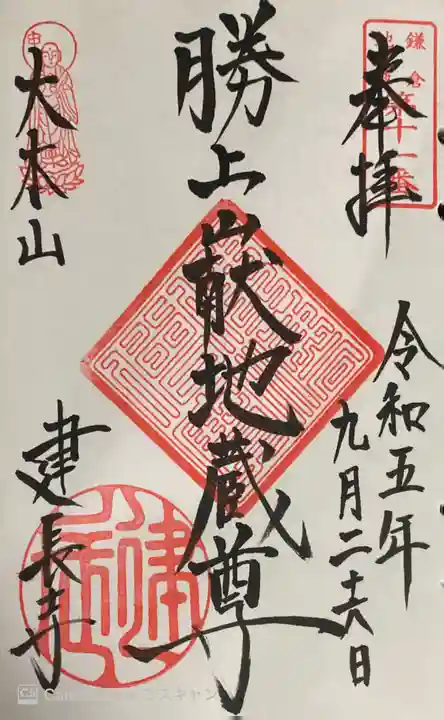 奉拝
鎌倉
第十一番
令和五年
九月二十六日
勝上山献地蔵尊
大本山
建長寺
スキャン